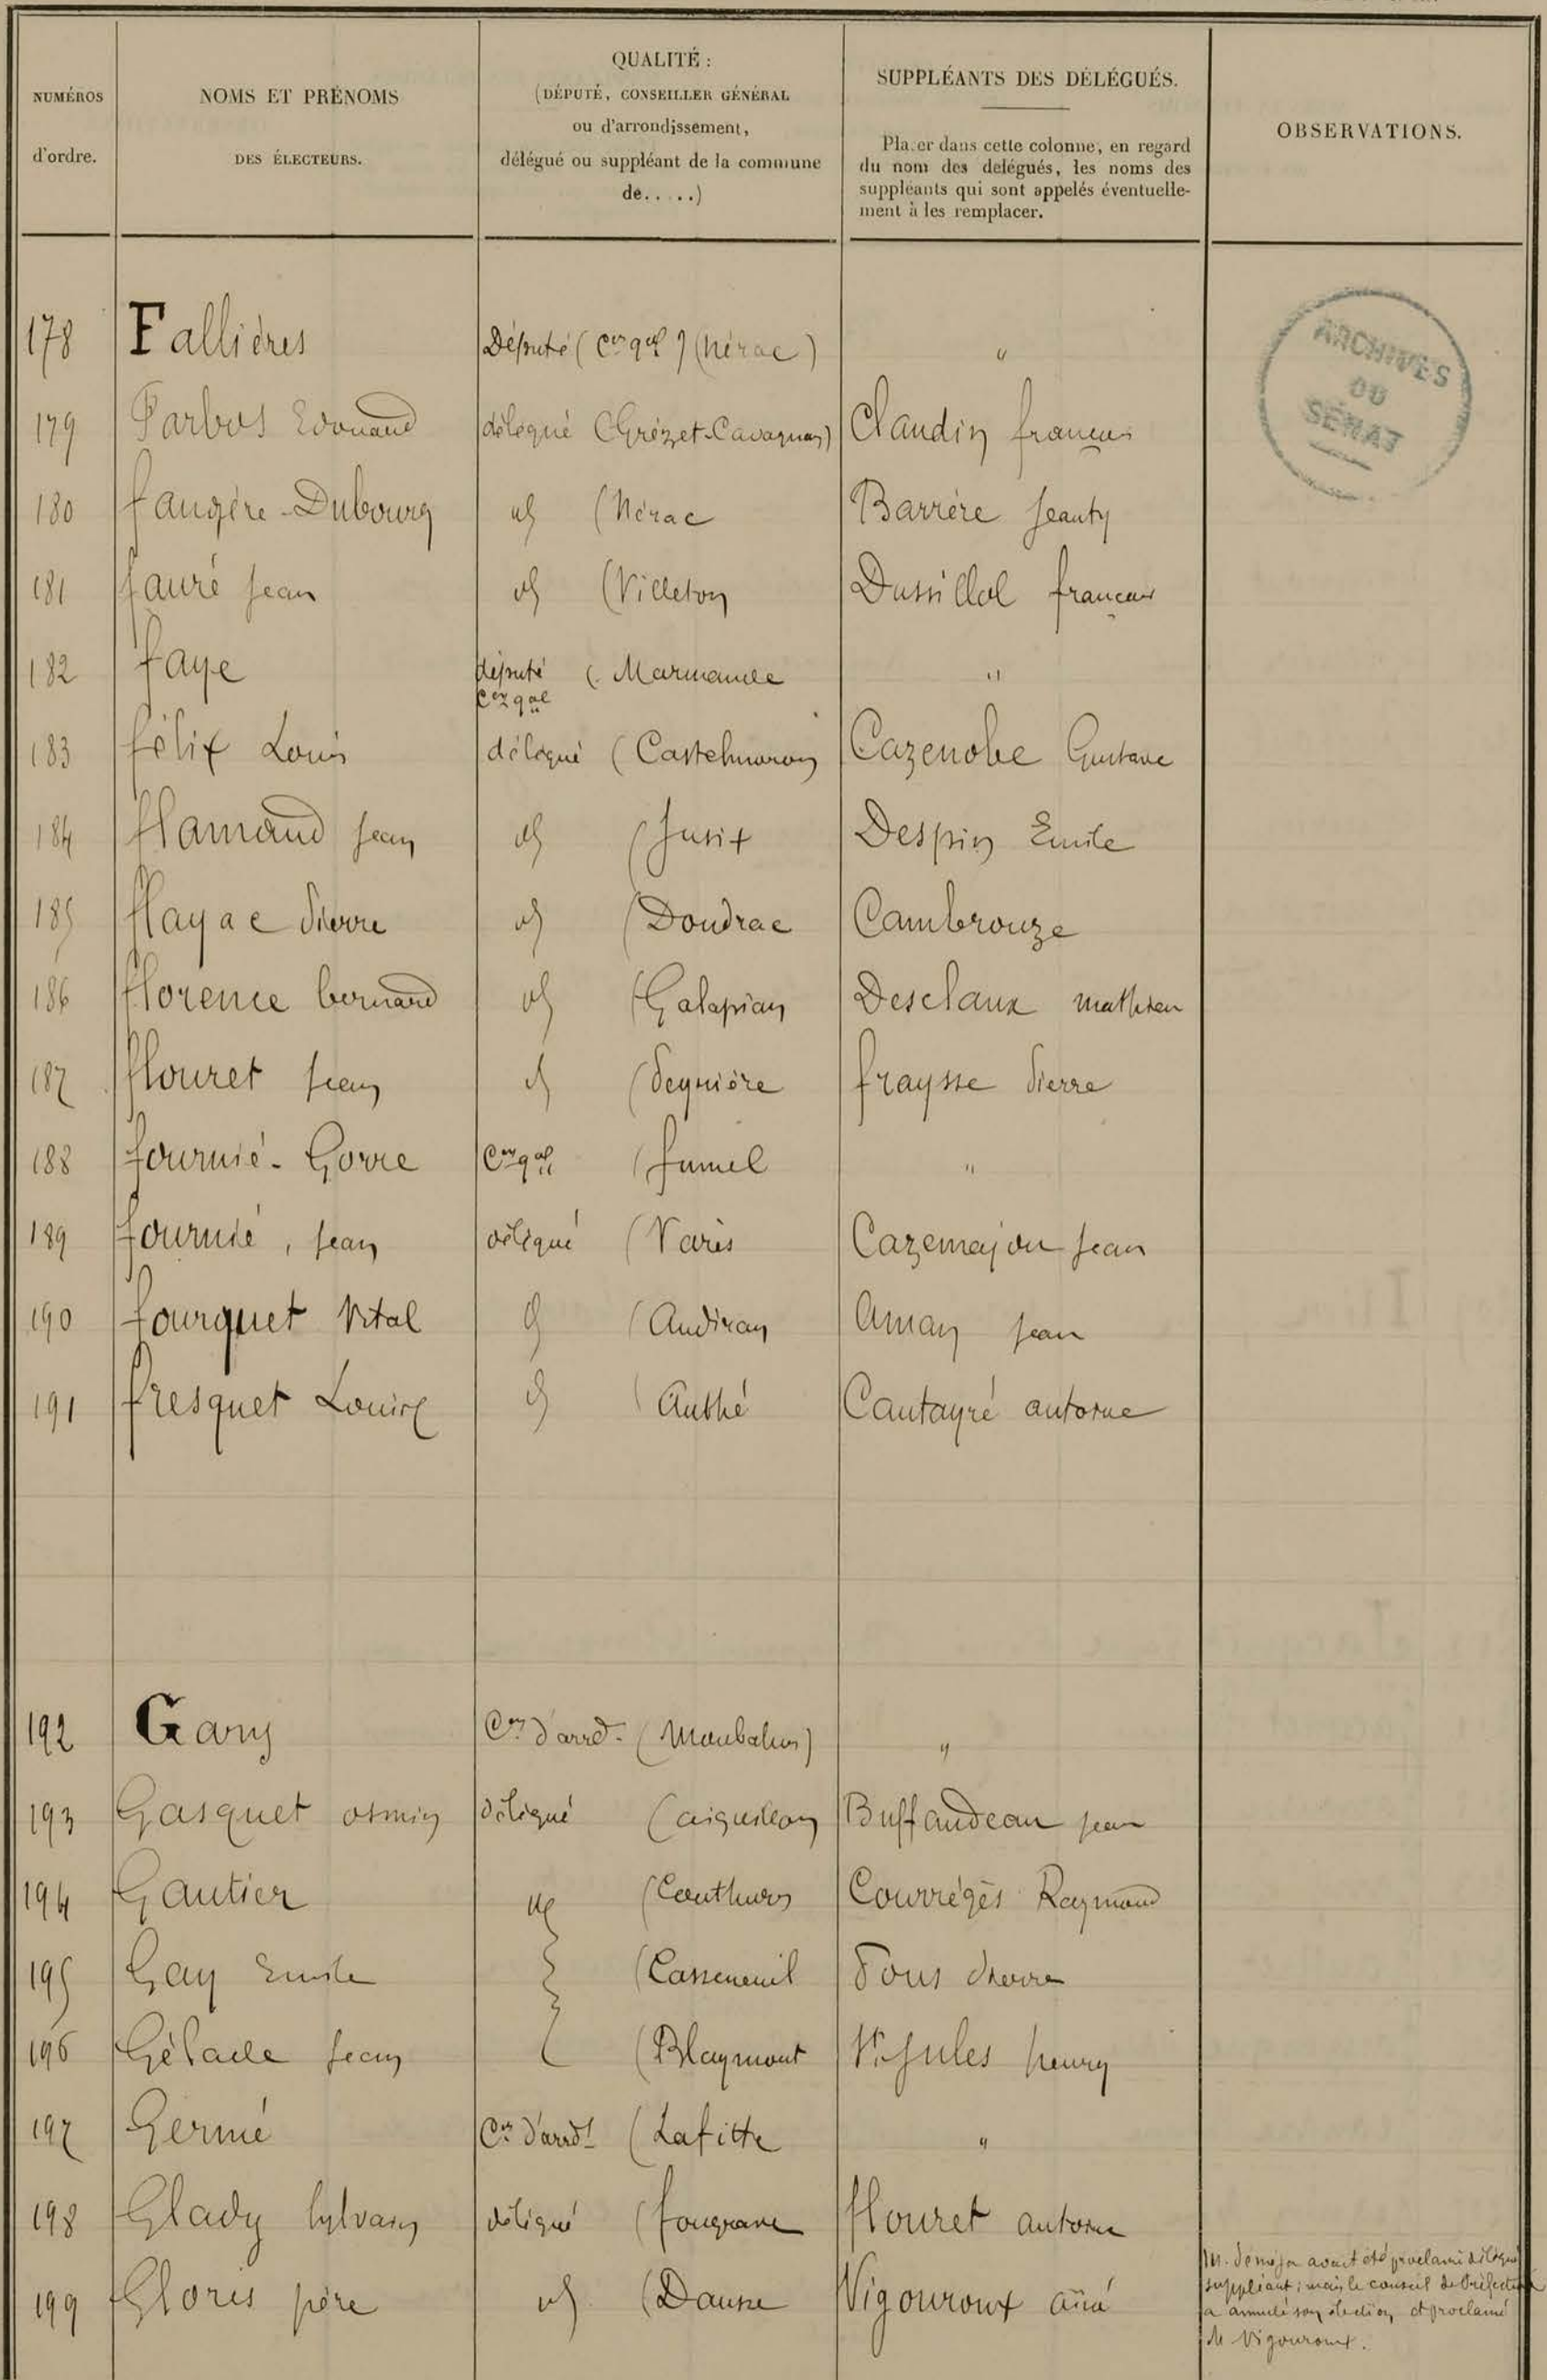 NUMÉROS d'ordre.
NOMS ET PRÉNOMS DES ÉLECTEURS.
QUALITÉ :
(DÉPUTÉ, CONSEILLER GÉNÉRAL
ou d'arrondissement,
délégué ou suppléant de la commune
de.....)
SUPPLÉANTS DES DÉLÉGUÉS.
Pla.er dans cette colonne, en regard
du nom des delégués, les noms des
suppléants qui sont appelés éventuelle-
ment à les remplacer.
OBSERVATIONS.
ARCHIVES
DU
SÉNAT
178 Fallières Député (Cer gal) (Nérac) "
179 Farbos Edouard délégué (Grézet-Cavagnan) Claudin françois
180 faugère-Dubourg id (Nérac Barrère Jeanty
181 fauré Jean id (Villeton Dussillol françois
182 faye député Cer gal ( Marmande "
183 félix Louis délégué (Castelmoron Cazenobe Gustave
184 flamand Jean id (Jusix Despin Emile
185 flayac Pierre id (Doudrac Cambrouze
186 florence bernard id (Galapian Desclaux mathieu
187 flouret Jean id (Peyrière fraysse Pierre
188 fournié-Gorre Cer gal (fumel "
189 fournié, Jean délégué (Varès Cazemajou Jean
190 fourquet Vital id (Andiran Aman Jean
191 fresquet Louis id (Anthé Cantayré antoine
192 Gary Cer d'arrd. (Monbahus) "
193 Gasquet osmin délégué (aiguillon Buffandeau jean
194 Gautier id (Couthures Courrégès Raymond
195 Gay Emile (Casseneuil Pons Pierre
196 Gélade Jean (Blaymont St Jules henry
197 Germé Cer d'arrdt (Lafitte "
198 Glady Sylvain délégué (fongrave flouret antoine
199 Gloris père id (Dausse Vigouroux aîné
M. avait été proclamé délégué
suppléant ; mais le conseil de Préfecture
a annulé son élection et proclamé
M Vigouroux.